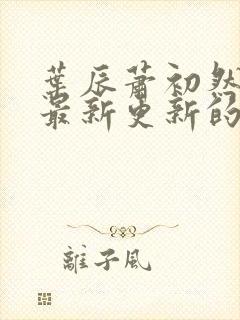 葉辰蕭初然
最新更新的
離子风